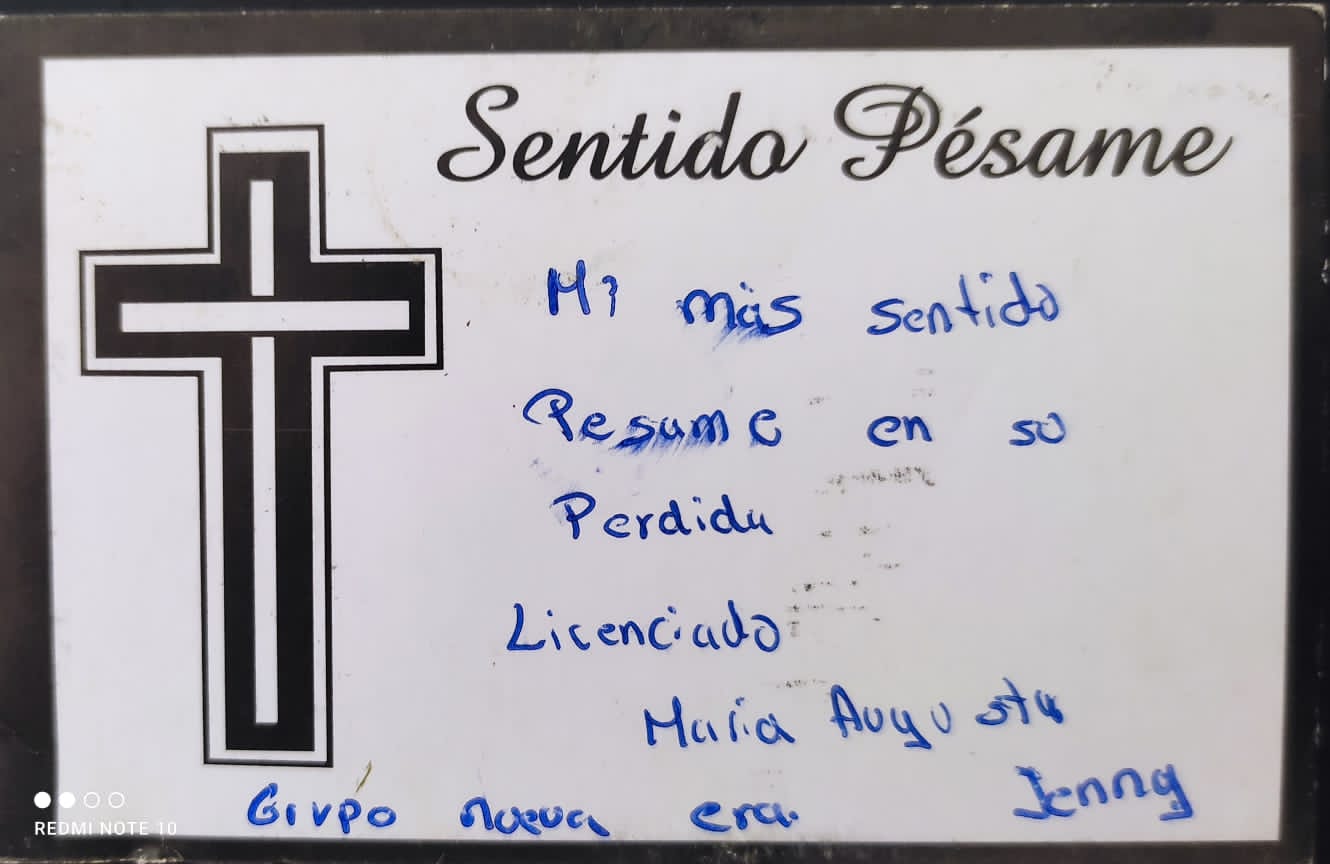 Sentido Pésame
Mi más sentido
Pesame en su
Perdida
Licenciado
María Augusta
Jenny
Grupo nueva era.
REDMI NOTE 10